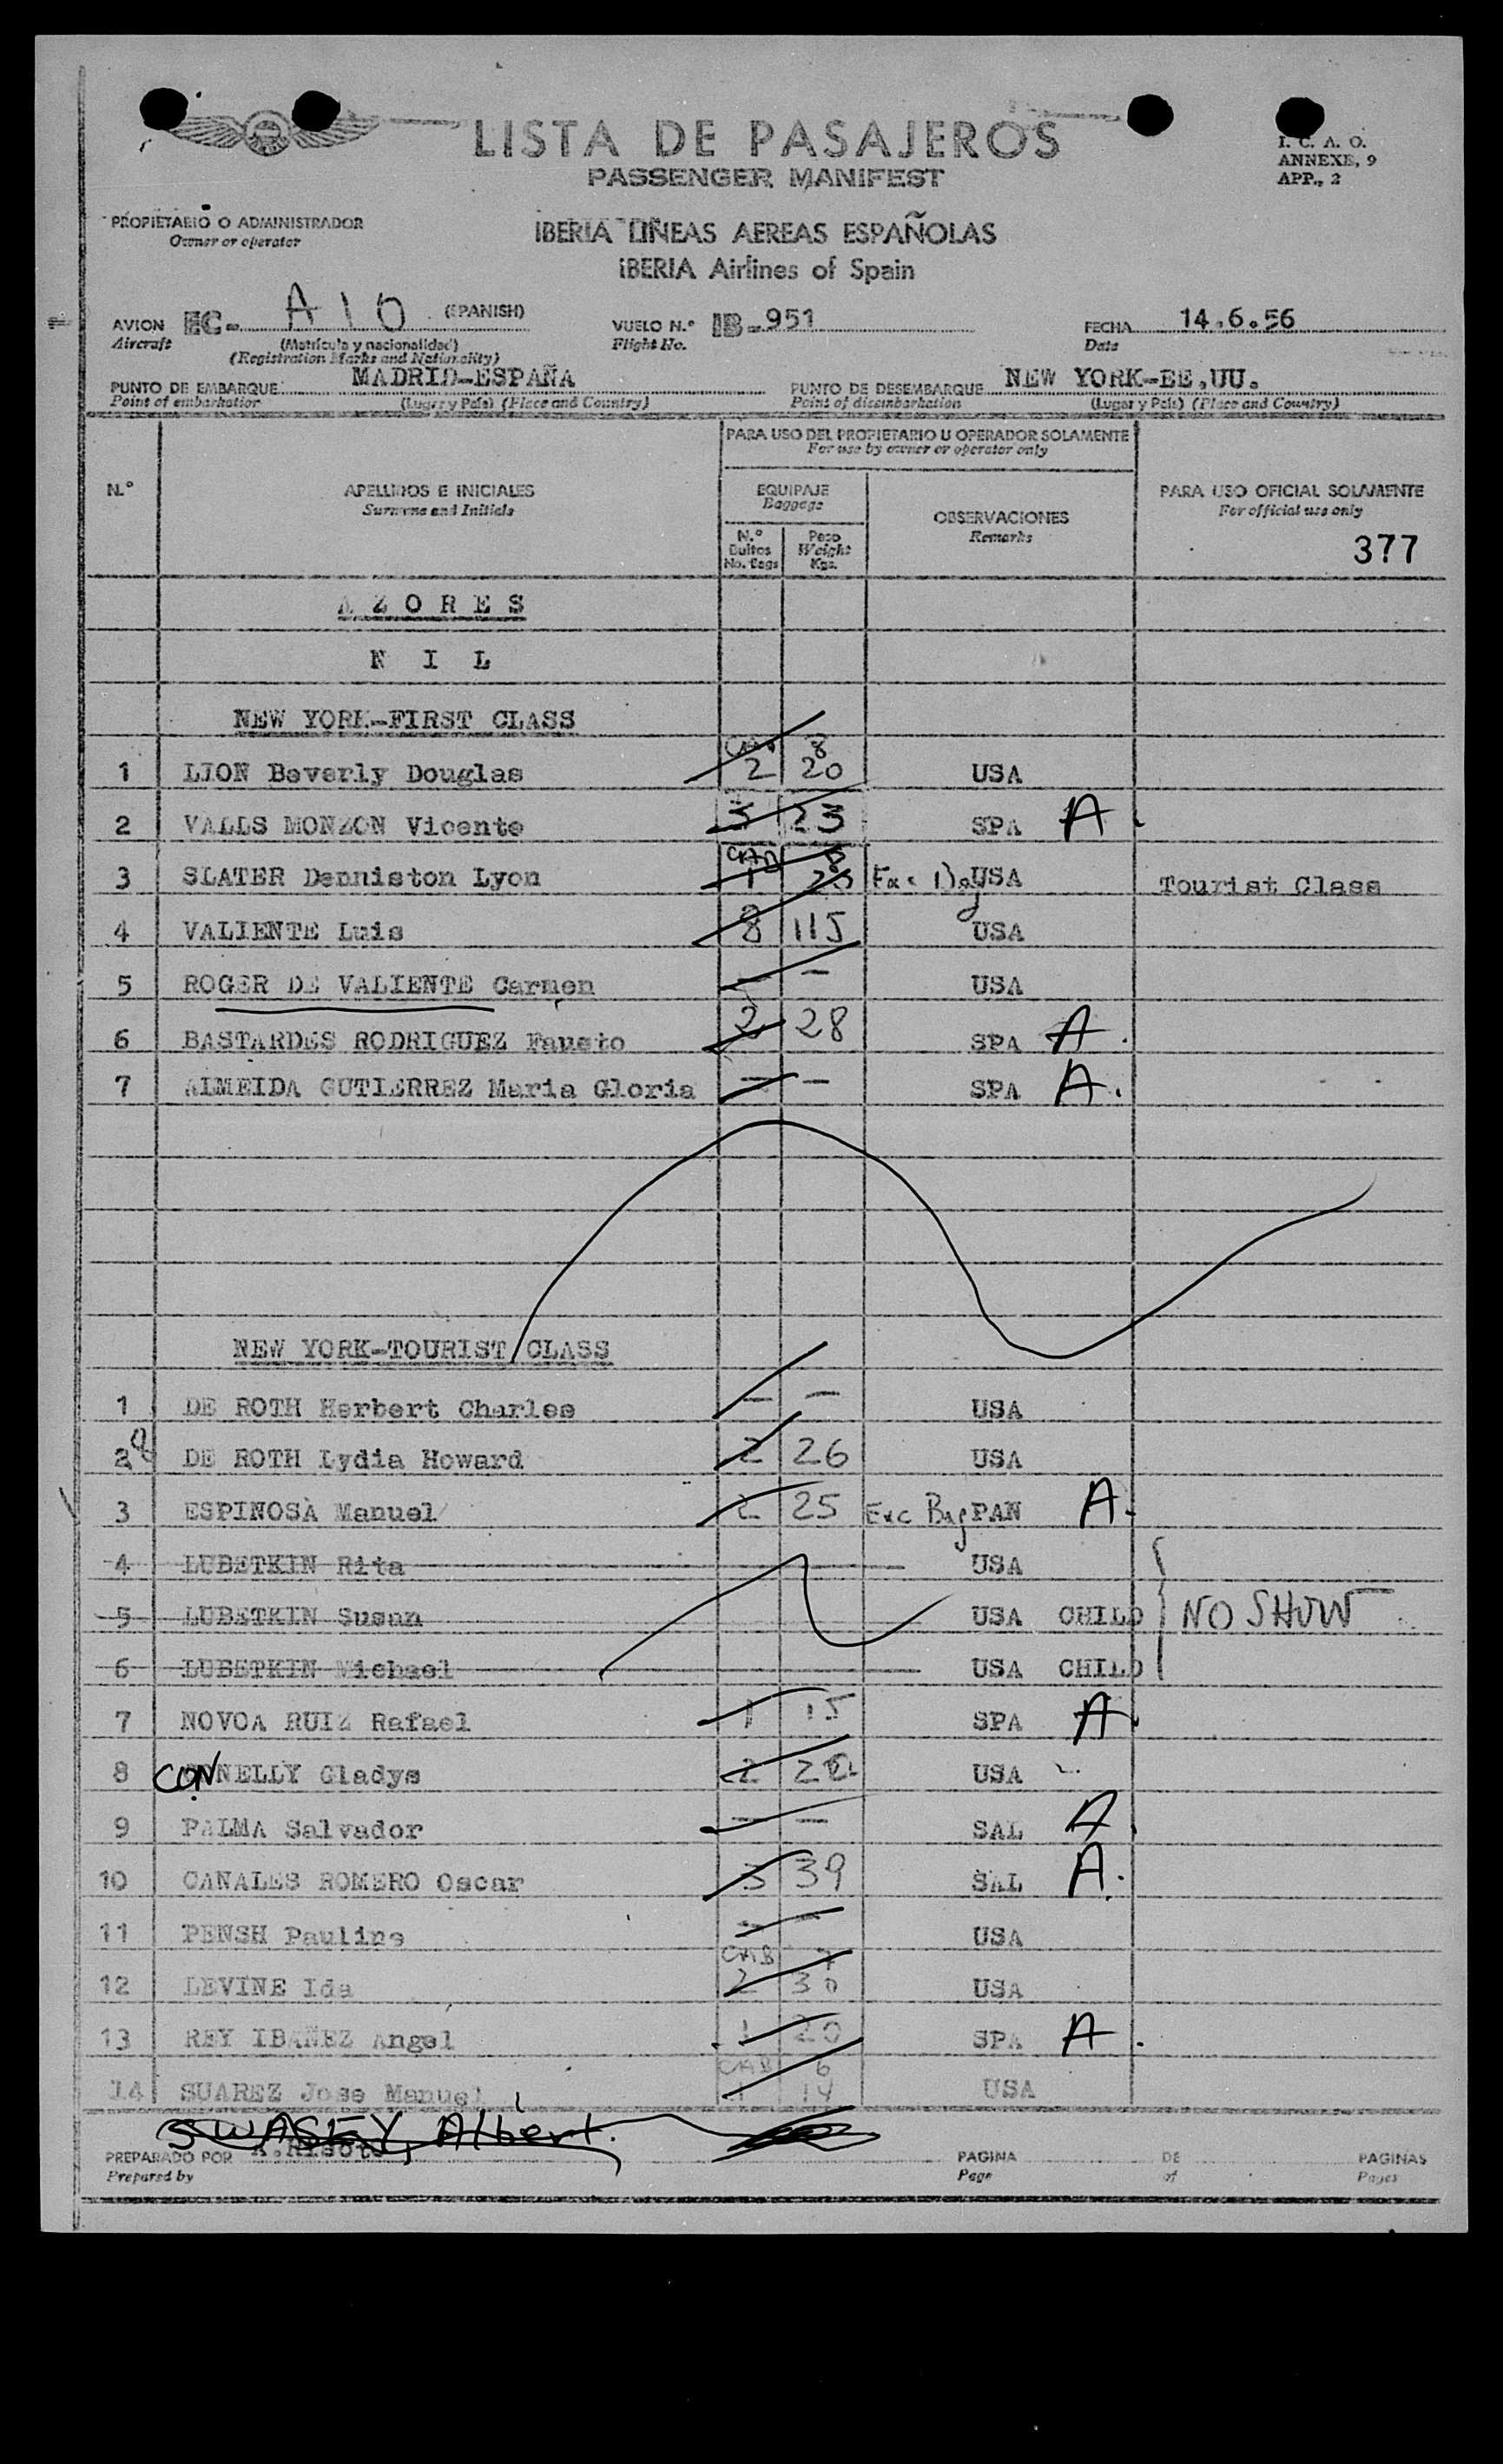 LISTA DE PASAJEROS
PASSENGER MANIFEST
I. C. A. O.
ANNEXE, 9
APP., 2
PROPIETARIO O ADMINISTRADOR
Owner or operator
IBERIA LINEAS AEREAS ESPAÑOLAS
IBERIA Airlines of Spain
AVION EC- A I O (SPANISH) VUELO N.º IB-951 FECHA 14.6.56
Aircraft (Matrícula y nacionalidad) Flight No. Date
(Registration Marks and Nationality)
PUNTO DE EMBARQUE MADRID-ESPAÑA PUNTO DE DESEMBARQUE NEW YORK-EE.UU.
Point of embarkation (Lugar y País) (Place and Country) Point of disembarkation (Lugar y País) (Place and Country)
PARA USO DEL PROPIETARIO U OPERADOR SOLAMENTE
For use by owner or operator only
N.º APELLIDOS E INICIALES EQUIPAJE OBSERVACIONES PARA USO OFICIAL SOLAMENTE
Surname and Initials Baggage Remarks For official use only
N.º Bultos No. Bags Peso Weight Kgs. 377
AZORES
NIL
NEW YORK-FIRST CLASS
CAB 8
1 LION Beverly Douglas 2 20 USA
2 VALLS MONZON Vicente 3 23 SPA A
CAB 8
3 SLATER Denniston Lyon 1 Exc Bag USA Tourist Class
4 VALIENTE Luis 8 115 USA
5 ROGER DE VALIENTE Carmen - - USA
6 BASTARDES RODRIGUEZ Fausto 2 28 SPA A.
7 ALMEIDA GUTIERREZ Maria Gloria - - SPA A.
NEW YORK-TOURIST CLASS
1 DE ROTH Herbert Charles - - USA
2 DE ROTH Lydia Howard 2 26 USA
3 ESPINOSA Manuel 2 25 Exc Bag PAN A.
4 LUBETKIN Rita USA
5 LUBETKIN Susan USA CHILD NO SHOW
6 LUBETKIN Michael USA CHILD
7 NOVOA RUIZ Rafael 1 15 SPA A
8 CONNELLY Gladys 2 USA
9 PALMA Salvador - - SAL A.
10 CANALES ROMERO Oscar 3 39 SAL A.
11 PENSH Pauline - - USA
CAB 7
12 LEVINE Ida 2 30 USA
13 REY IBAÑEZ Angel 1 20 SPA A.
CAB 6
14 SUAREZ Jose Manuel 1 14 USA
SWASEY, Albert.
PREPARADO POR PAGINA DE PAGINAS
Prepared by Page of Pages